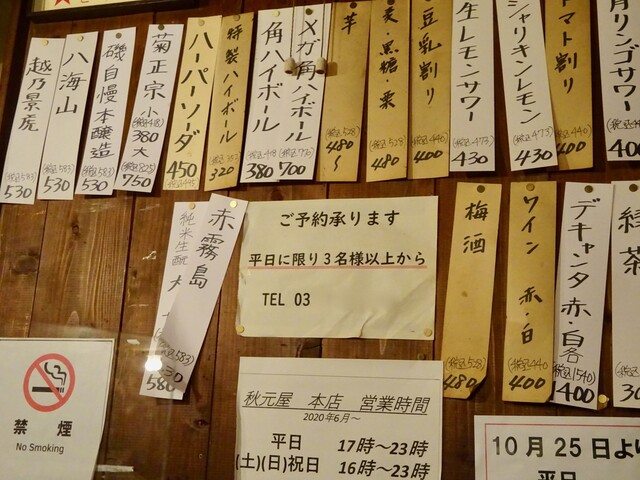 越乃景虎
(税込583)
530
八海山
(税込583)
530
磯自慢本醸造
(税込583)
530
菊正宗小
(税込418)
380
大
(税込825)
750
ハーパーソーダ
450
(税込495)
特製ハイボール
320
角ハイボール
(税込418)
380
メガ角ハイボール
(税込770)
700
芋
(税込528)
480〜
麦・黒糖・栗
(税込528)
480
豆乳割り
(税込440)
400
生レモンサワー
(税込473)
430
シャリキンレモン
(税込473)
430
トマト割り
(税込440)
400
リンゴサワー
400
赤霧島
純米生酛
(税込583)
580
ご予約承ります
平日に限り3名様以上から
TEL 03
梅酒
(税込528)
480
ワイン 赤・白
(税込440)
400
デキャンタ赤・白各
(税込1540)
1400
緑茶
禁煙
No Smoking
秋元屋 本店 営業時間
2020年6月〜
平日 17時〜23時
(土)(日)祝日 16時〜23時
10月25日より
平日